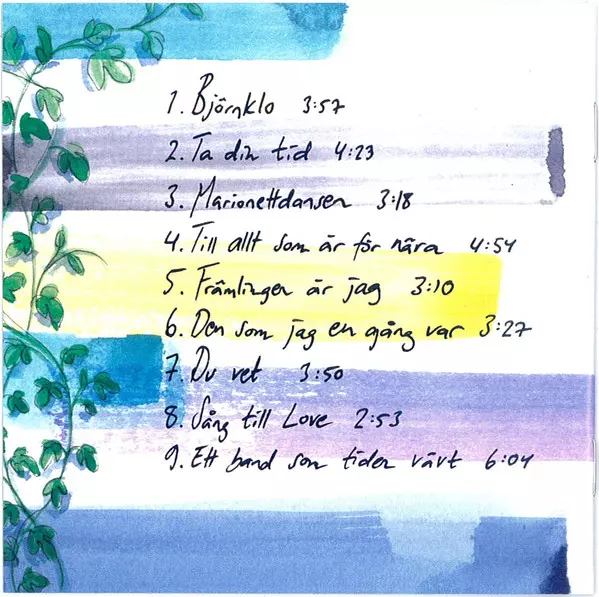 1. Björnklo 3:57
2. Ta din tid 4:23
3. Marionettdansen 3:18
4. Till allt som är för nära 4:54
5. Främlingen är jag 3:10
6. Den som jag en gång var 3:27
7. Du vet 3:50
8. Sång till Love 2:53
9. Ett band som tiden vävt 6:04